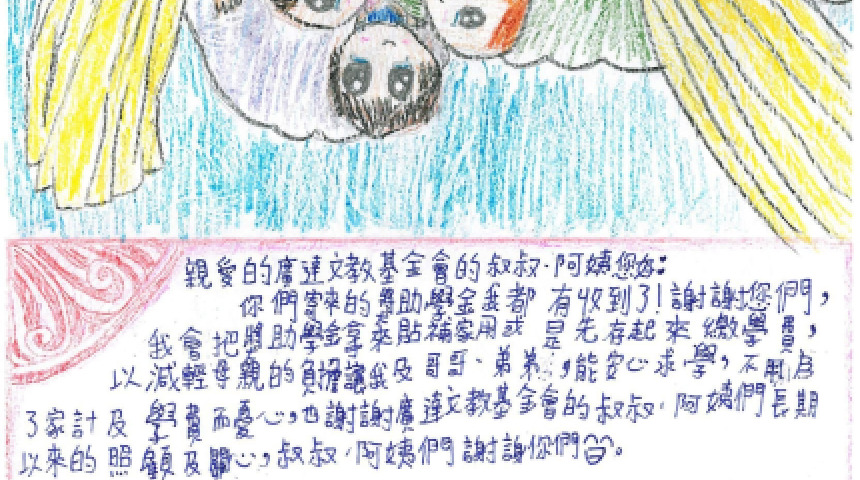 親愛的廣達文教基金會的叔叔、阿姨您好:
你們寄來的獎助學金我都有收到了!謝謝您們,
我會把獎助學金拿來貼補家用或是先存起來繳學費,
以減輕母親的負擔讓我及哥哥、弟弟,能安心求學,不用為
了家計及學費而憂心,也謝謝廣達文教基金會的叔叔、阿姨們長期
以來的照顧及關心,叔叔、阿姨們謝謝你們。